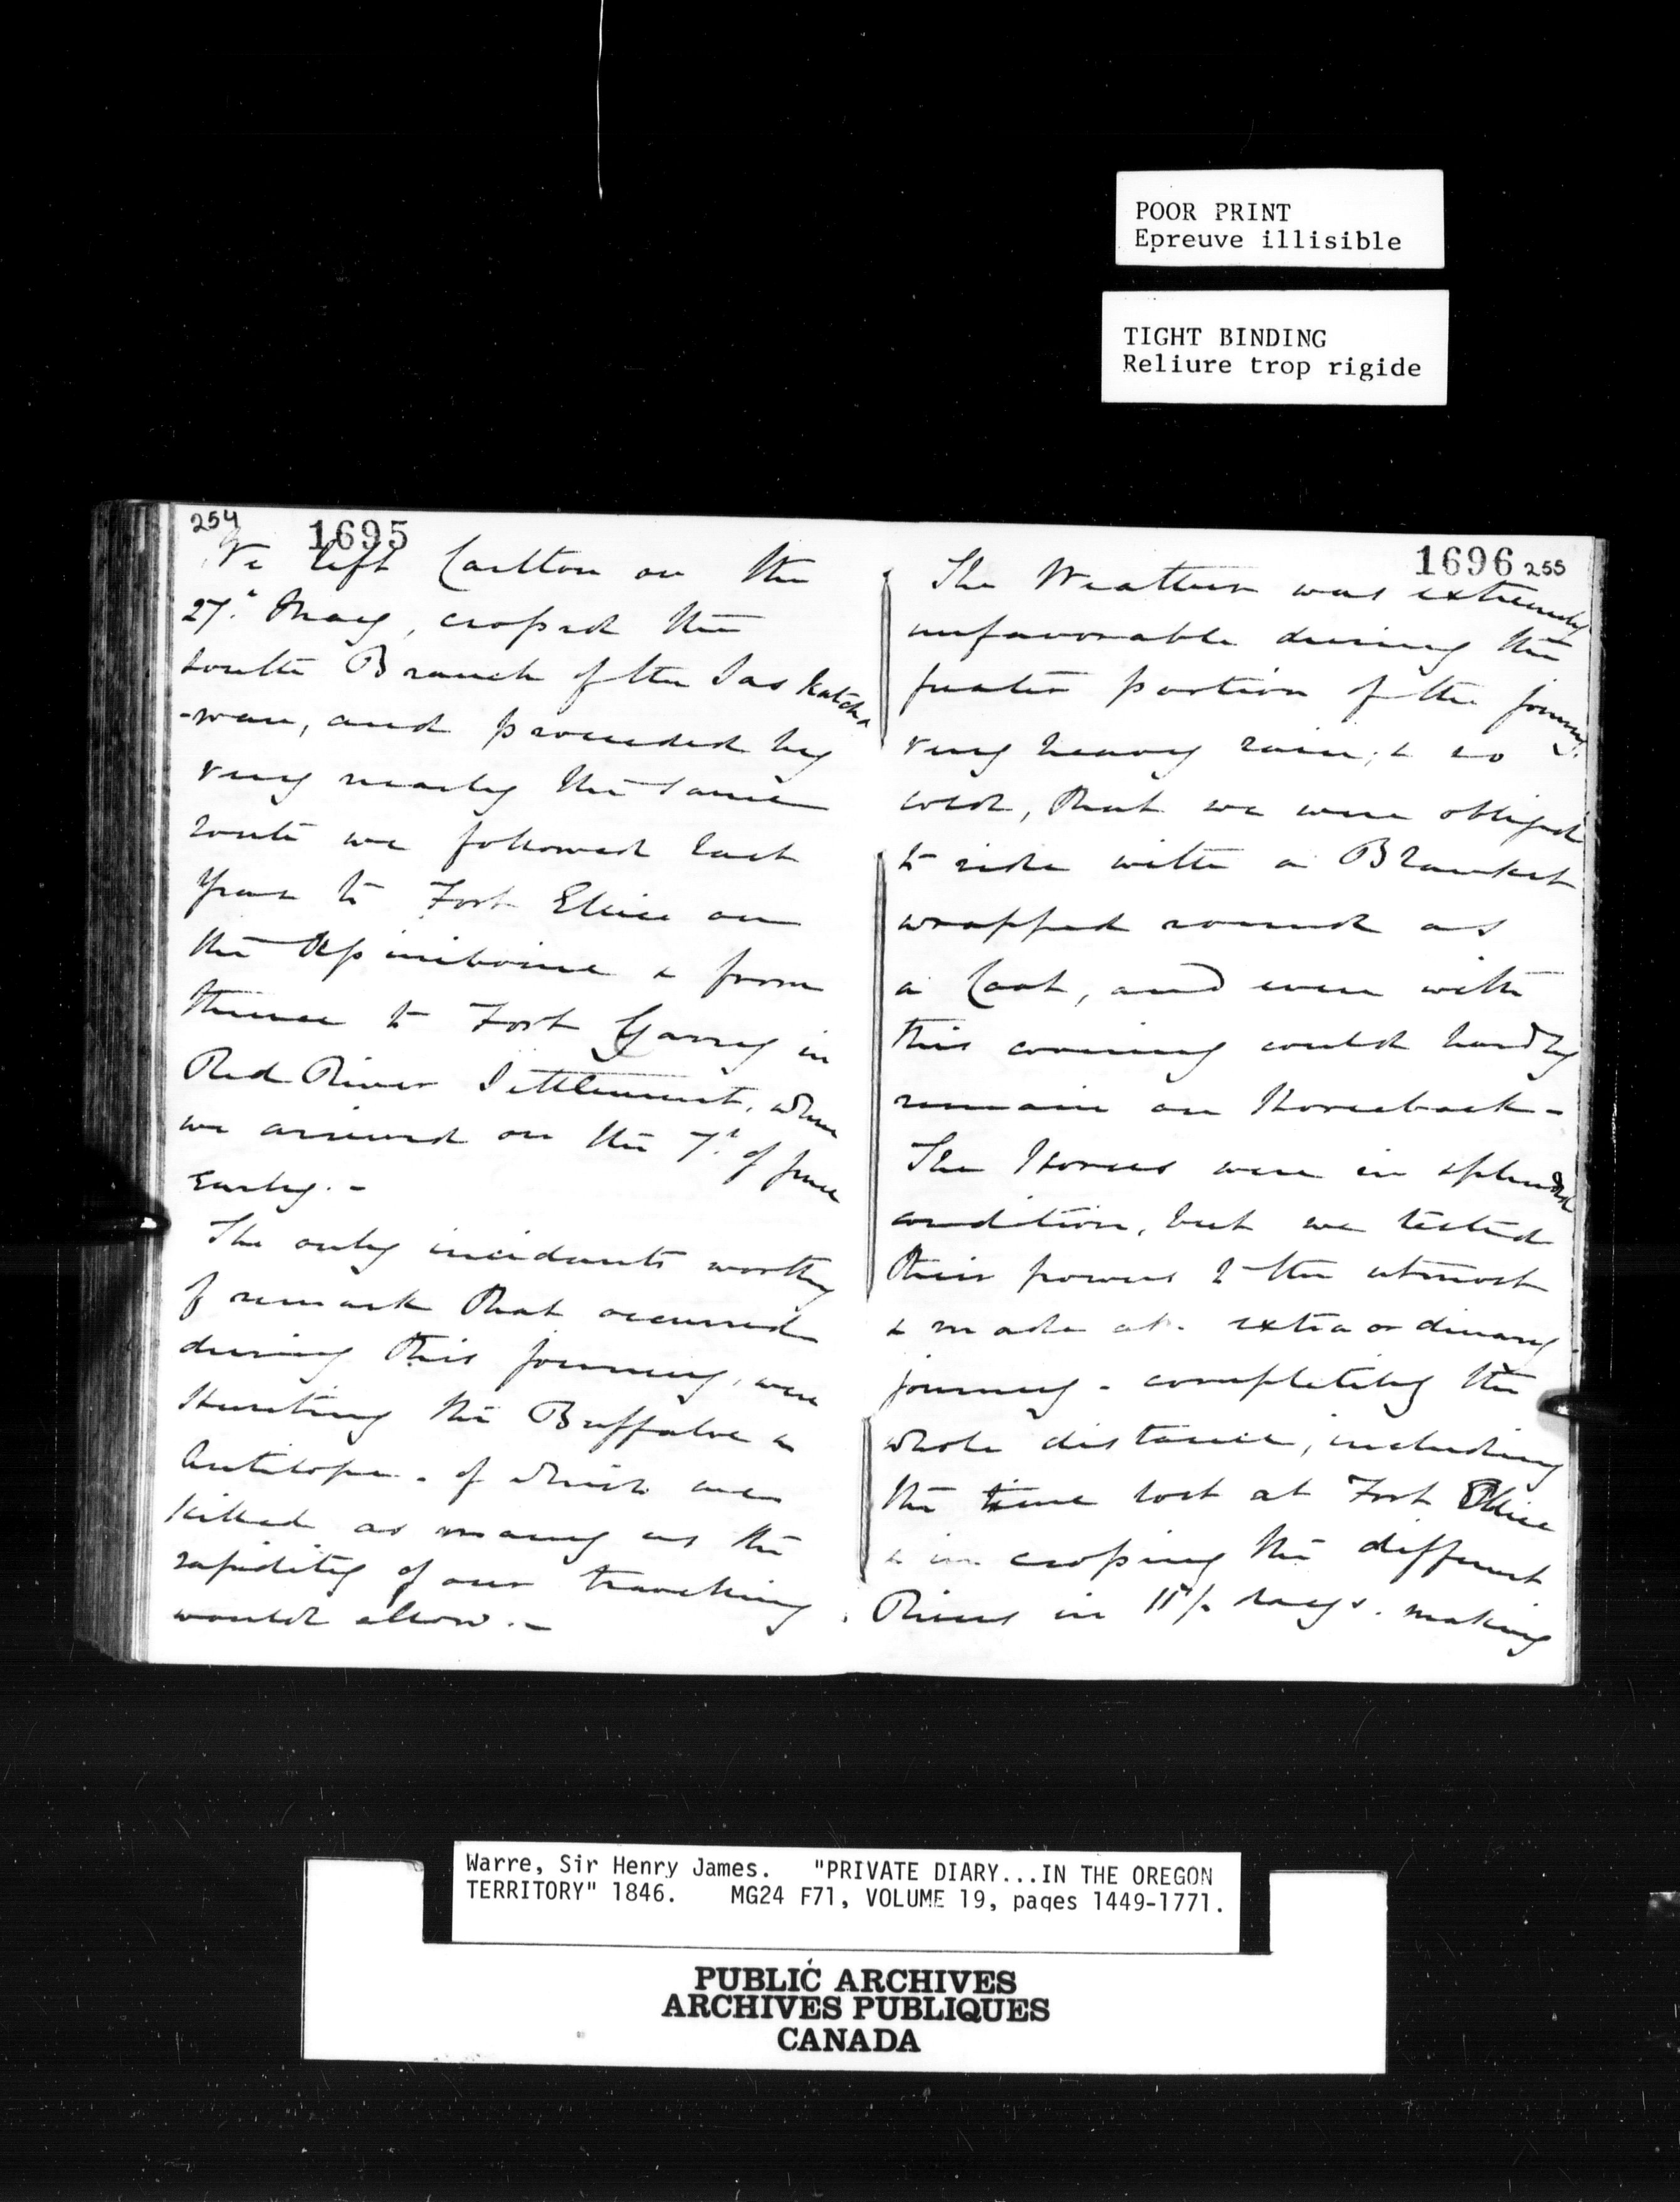 POOR PRINT
Epreuve illisible
TIGHT BINDING
Reliure trop rigide
254
1695
We left Carlton on the
27th May, crossed the
South Branch of the Saskatche
-wan, and proceeded by
very nearly the same
route we followed last
year to Fort Ellice on
the Assiniboine & from
thence to Fort Garry in
Red River Settlement, where
we arrived on the 7th of June
Early. -
The only incidents worthy
of remark that occurred
during this journey, were
Hunting the Buffaloe &
Antilope - of which we
killed as many as the
rapidity of our travelling
would allow. -
1696 255
The Weather was extremely
unfavorable during the
greater portion of the journey.
very heavy rain, & so
cold, that we were obliged
to ride with a Blanket
wrapped round as
a Coat, and even with
this covering could hardly
remain on Horseback -
The Horses were in splendid
condition, but we tested
their powers to the utmost
& made an extraordinary
journey - completing the
whole distance, including
the time lost at Fort Ellice
& in crossing the different
Rivers in 11½ days. making
Warre, Sir Henry James. "PRIVATE DIARY...IN THE OREGON
TERRITORY" 1846. MG24 F71, VOLUME 19, pages 1449-1771.
PUBLIC ARCHIVES
ARCHIVES PUBLIQUES
CANADA